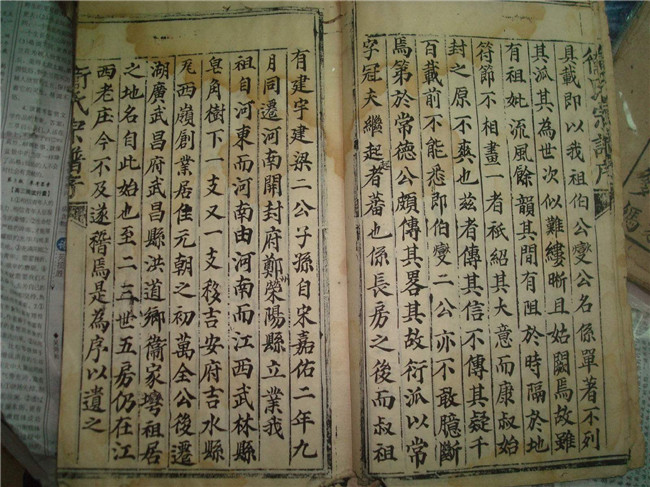 衛氏宗譜序
具載即以我祖伯公變公名係單著不列
其派其為世次似難縷晰且姑闕焉故雖
有祖妣流風餘韻其間有阻於時隔於地
符節不相畫一者秪紹其大意而康叔始
封之原不爽也茲者傳其信不傳其疑千
百載前不能悉即伯變二公亦不敢臆斷
焉第於常德公頗傳其畧其故衍派以常
字冠夫繼起者蕃也係長房之後而叔祖
有建字建梁二公子孫自宋嘉佑二年九
月同遷河南開封府鄭州榮陽縣立業我
祖自河東而河南由河南而江西武林縣
皂角樹下一支又一支移吉安府吉水縣
瓦西嶺創業居住元朝之初萬全公後遷
湖廣武昌府武昌縣洪道鄉衛家塆祖居
之地名自此始也至二三世五房仍在江
西老庄今不及遂稽焉是為序以遺之
衛氏宗譜序